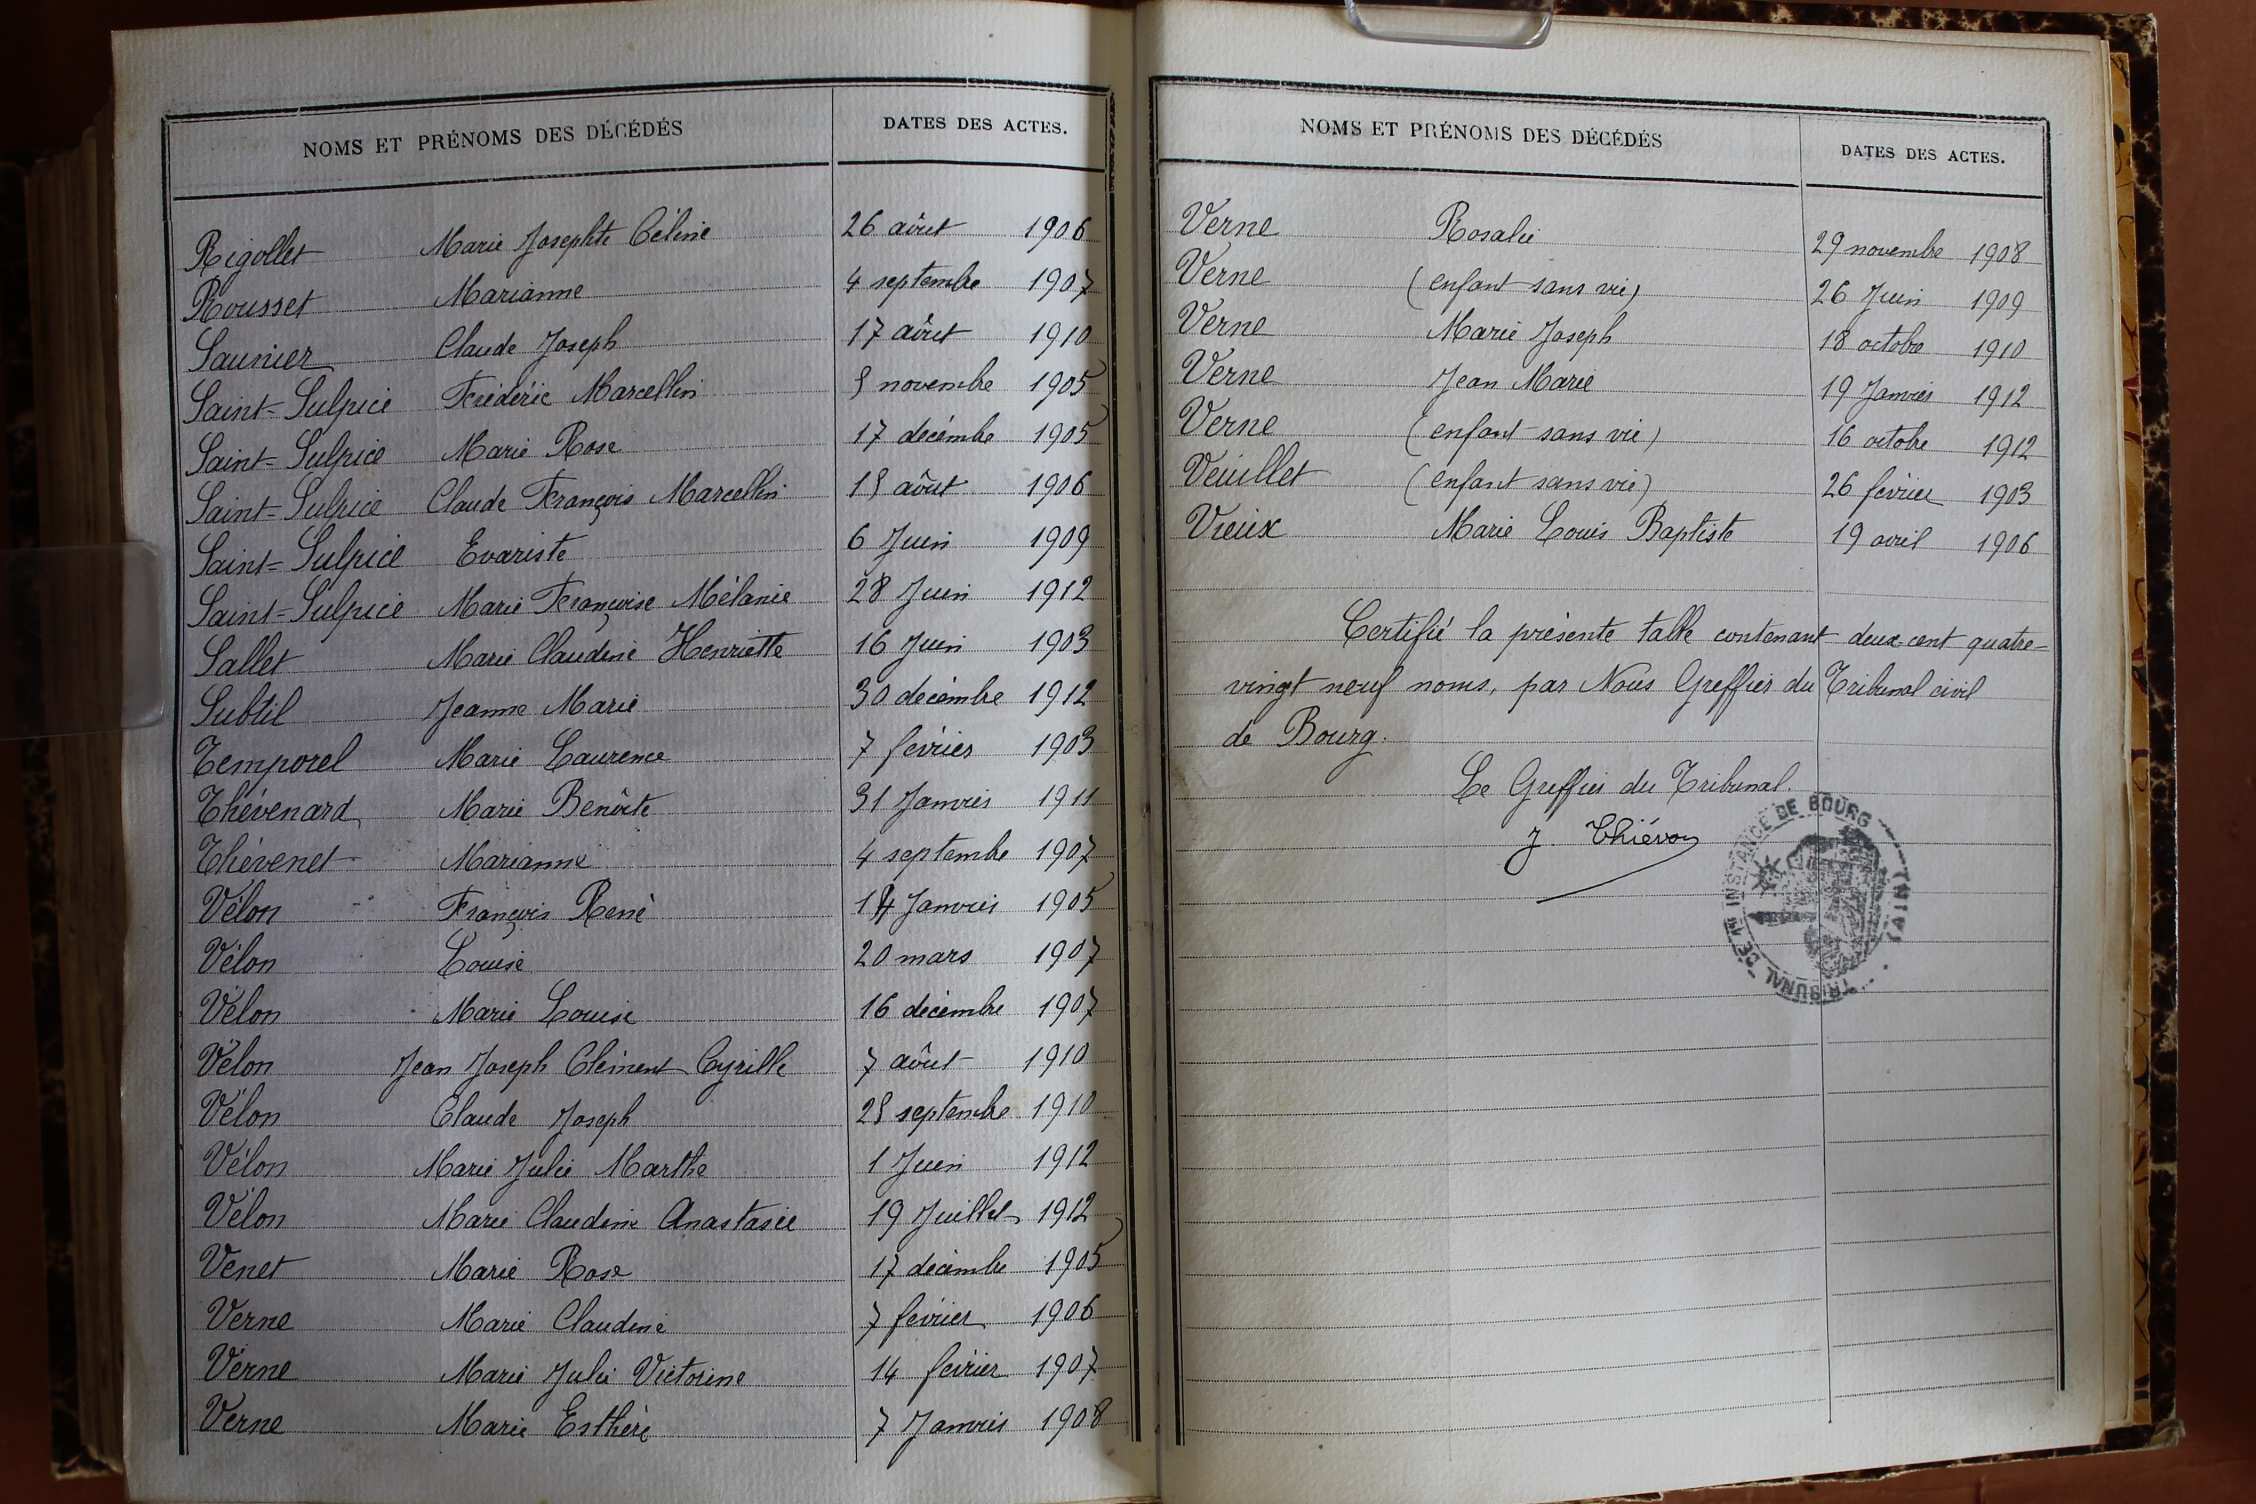 NOMS ET PRÉNOMS DES DÉCÉDÉS DATES DES ACTES.
Rigollet Marie Josephte Céline 26 aôut 1906
Rousset Marianne 4 septembre 1907
Saunier Claude Joseph 17 aôut 1910
Saint-Sulpice Frédéric Marcellin 8 novembre 1905
Saint-Sulpice Marie Rose 17 décembre 1905
Saint-Sulpice Claude François Marcellin 18 aôut 1906
Saint-Sulpice Evariste 6 Juin 1909
Saint-Sulpice Marie Françoise Mélanie 28 Juin 1912
Sallet Marie Claudine Henriette 16 Juin 1903
Subtil Jeanne Marie 30 décembre 1912
Temporel Marie Laurence 7 février 1903
Thévenard Marie Benôite 31 Janvier 1911
Thévenet Marianne 4 septembre 1907
Vélon François René 14 Janvier 1905
Vélon Louise 20 mars 1907
Vélon Marie Louise 16 décembre 1907
Vélon Jean Joseph Clément Cyrille 7 aôut 1910
Vélon Claude Joseph 28 septembre 1910
Vélon Marie Julie Marthe 1 Juin 1912
Vélon Marie Claudine Anastasie 19 Juillet 1912
Venet Marie Rose 17 décembre 1905
Verne Marie Claudine 7 février 1906
Verne Marie Julie Victorine 14 février 1907
Verne Marie Esthère 7 Janvier 1908
NOMS ET PRÉNOMS DES DÉCÉDÉS DATES DES ACTES.
Verne Rosalie 29 novembre 1908
Verne (enfant sans vie) 26 Juin 1909
Verne Marie Joseph 18 octobre 1910
Verne Jean Marie 19 Janvier 1912
Verne (enfant sans vie) 16 octobre 1912
Veuillet (enfant sans vie) 26 février 1903
Vieux Marie Louis Baptiste 19 avril 1906
Certifié la présente table contenant deux cent quatre-
vingt neuf noms, par Nous Greffier du Tribunal civil
de Bourg.
Le Greffier du Tribunal.
J. Thiévon
TRIBUNAL DE 1re INSTANCE DE BOURG (AIN)